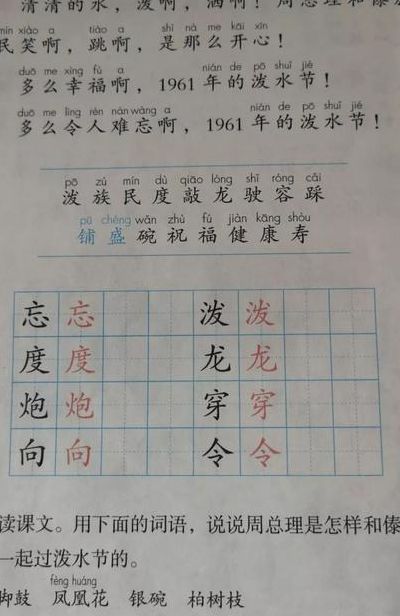 清清的水，泼啊，洒啊！周总理和傣
mín xiào a tiào a shì nà me kāi xīn
民笑啊，跳啊，是那么开心！
duō me xìng fú a nián de pō shuǐ jié
多么幸福啊，1961 年的泼水节！
duō me lìng rén nán wàng a nián de pō shuǐ jié
多么令人难忘啊，1961 年的泼水节！
pō zú mín dù qiāo lóng shǐ róng cǎi
泼 族 民 度 敲 龙 驶 容 踩
pū chéng wǎn zhù fú jiàn kāng shòu
铺 盛 碗 祝 福 健 康 寿
忘 忘 泼 泼
度 度 龙 龙
炮 炮 穿 穿
向 向 令 令
读课文。用下面的词语，说说周总理是怎样和傣
一起过泼水节的。
fèng huáng
脚鼓 凤凰花 银碗 柏树枝